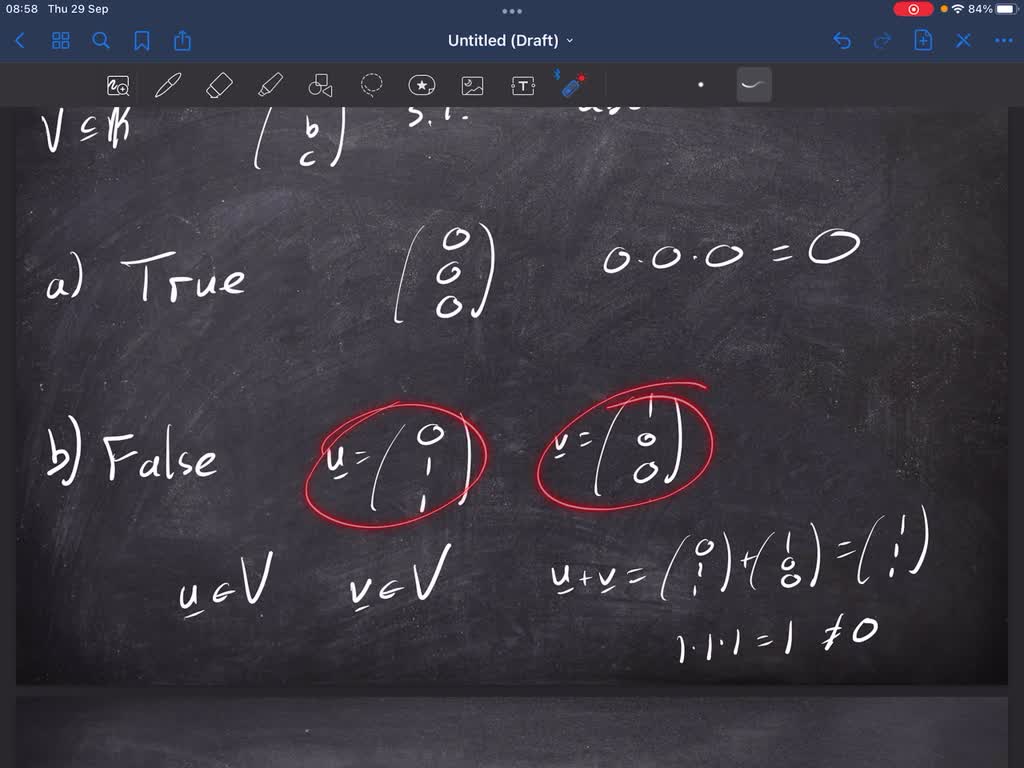 08:58 Thu 29 Sep 84%
Untitled (Draft)
T
V ⊆ ℝ ( b c ) s.t.
a) True ( 0 0 0 ) 0·0·0 = 0
b) False u = ( 0 1 1 ) v = ( 1 0 0 )
u ∈ V v ∈ V u + v = ( 0 1 1 ) + ( 1 0 0 ) = ( 1 1 1 )
1·1·1 = 1 ≠ 0